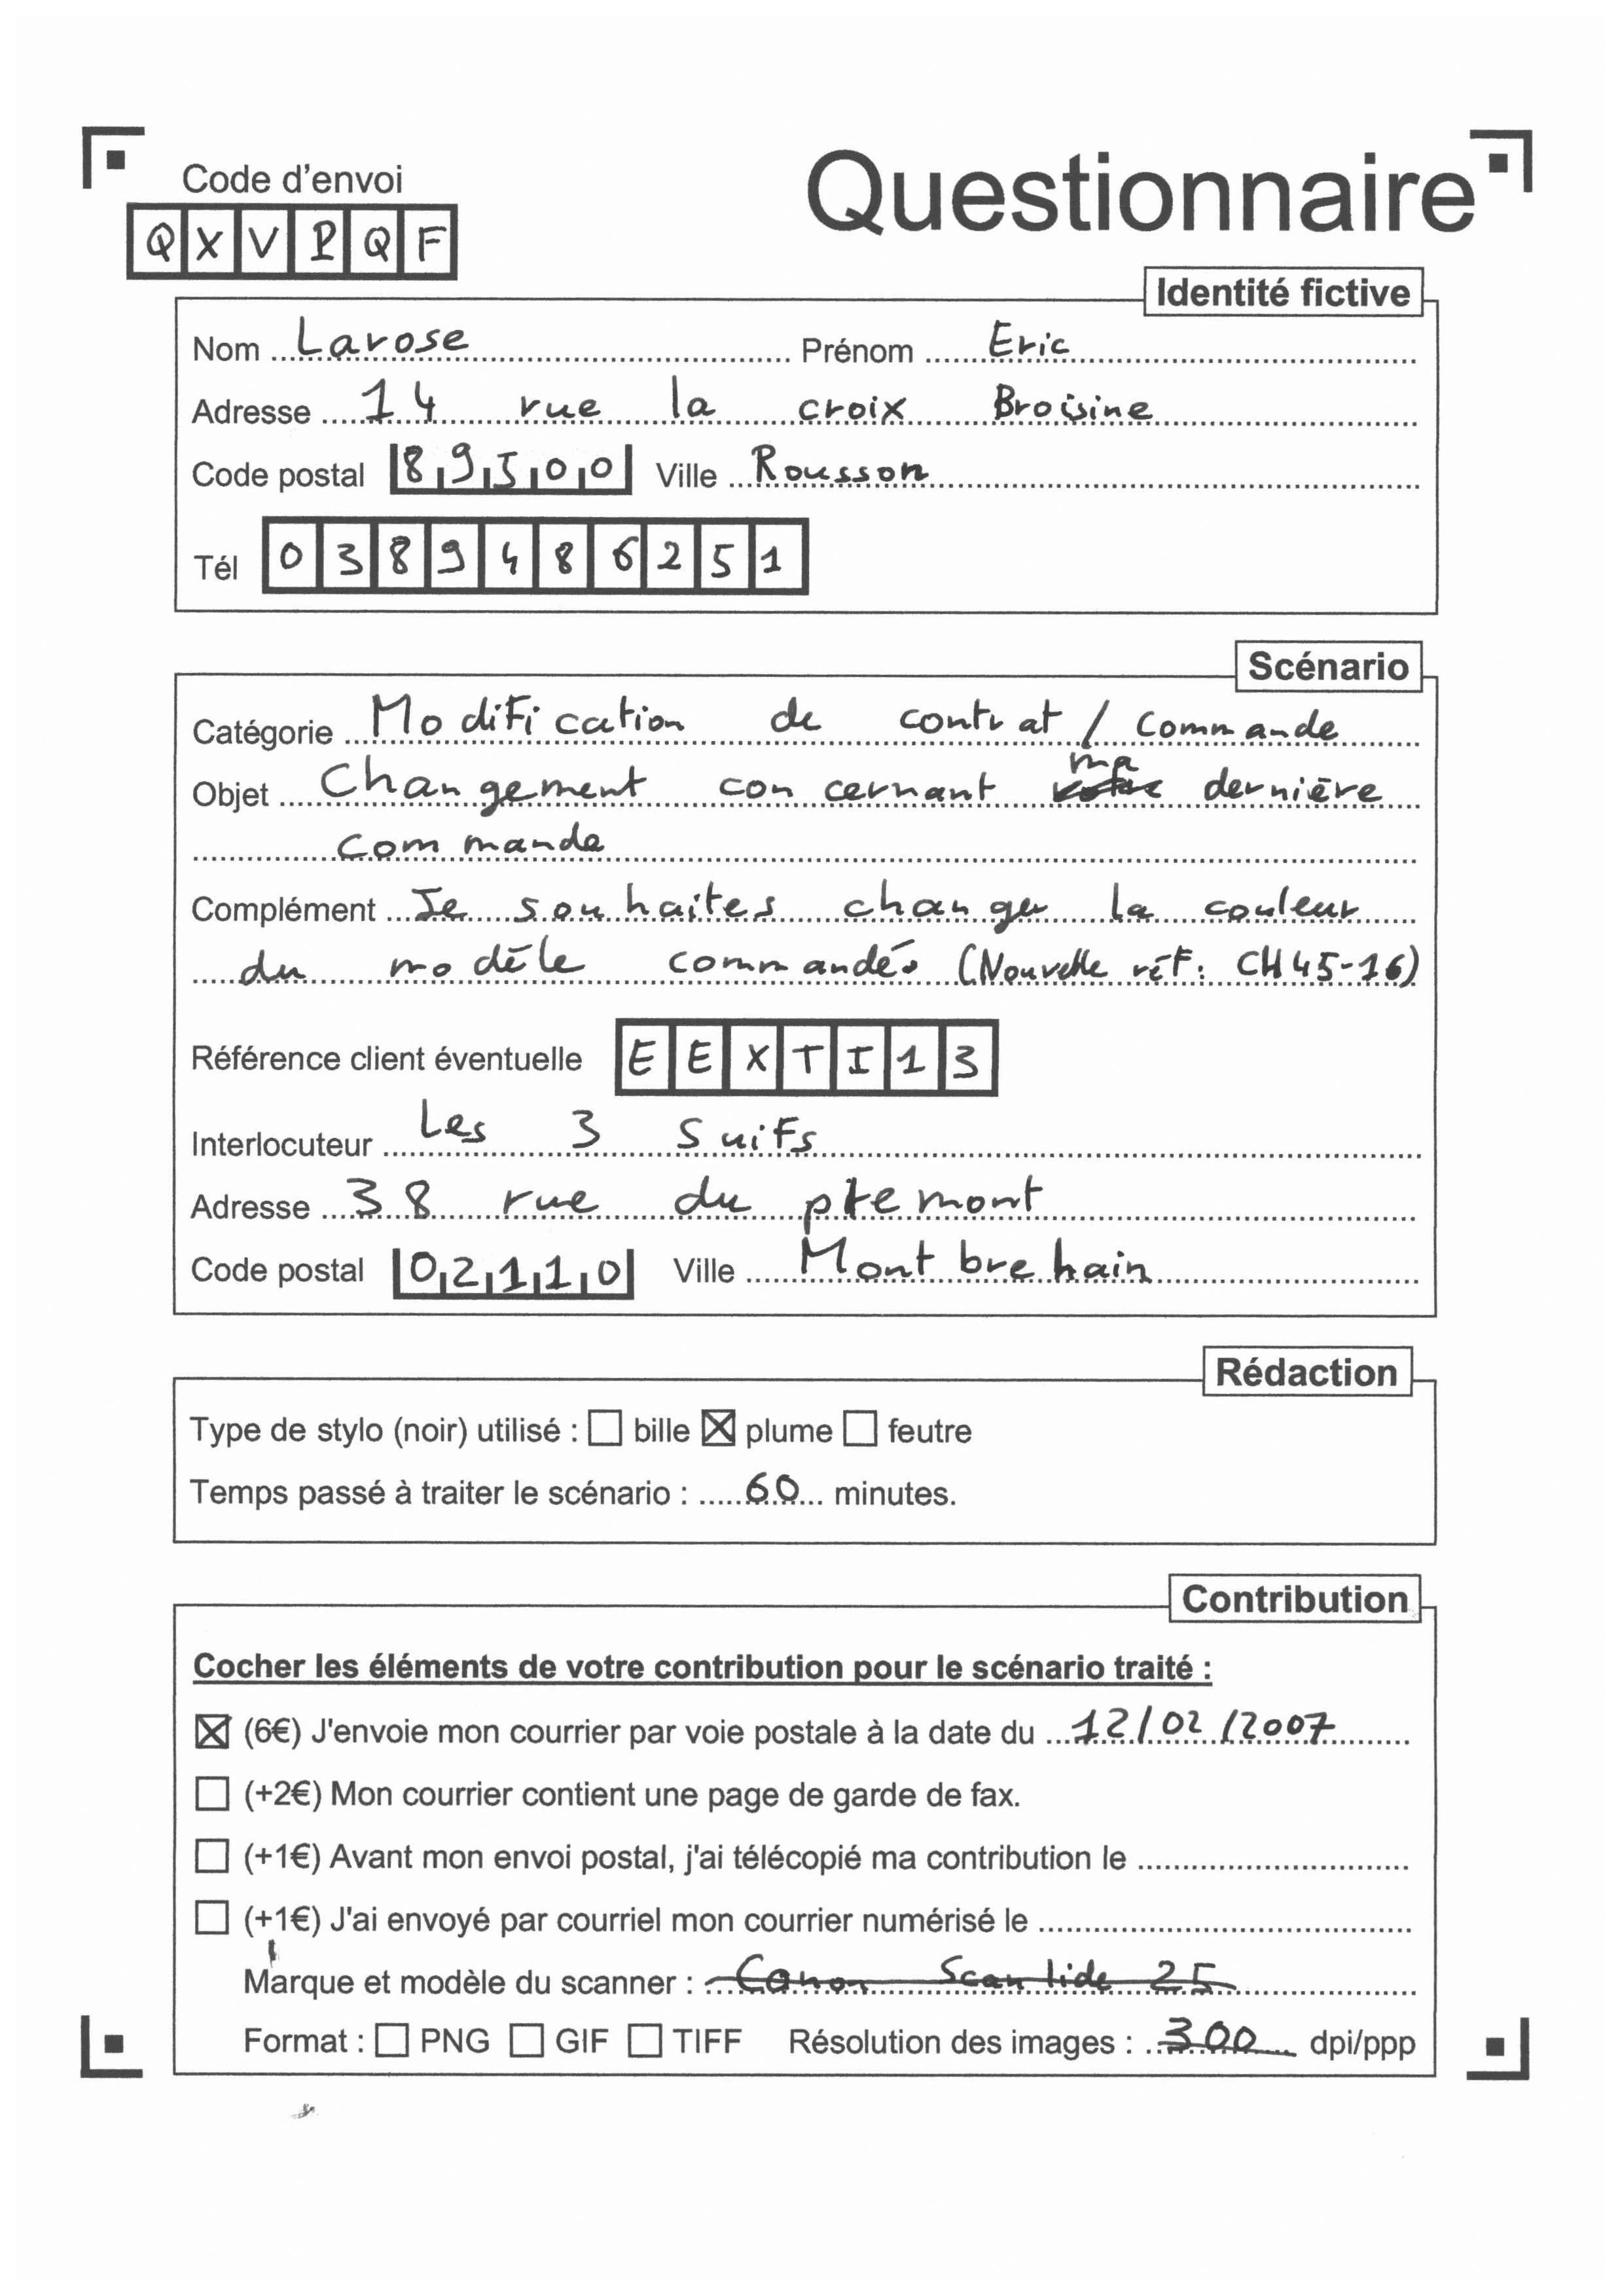 Questionnaire
Code d'envoi
QXVPQF
Identité fictive
Nom Larose Prénom Eric
Adresse 14 rue la croix Broisine
Code postal 89500 Ville Rousson
Tél 0389486251
Scénario
Catégorie Modification de contrat / Commande
Objet Changement concernant ma dernière
Commande
Complément Je souhaites changer la couleur
du modèle commandé (Nouvelle réf: CH45-16)
Référence client éventuelle EEXTI13
Interlocuteur Les 3 Suifs
Adresse 38 rue du ptemont
Code postal 02110 Ville Montbrehain
Rédaction
Type de stylo (noir) utilisé : ☐ bille ☒ plume ☐ feutre
Temps passé à traiter le scénario : 60 minutes.
Contribution
Cocher les éléments de votre contribution pour le scénario traité :
☒ (6€) J'envoie mon courrier par voie postale à la date du 12/02/2007
☐ (+2€) Mon courrier contient une page de garde de fax.
☐ (+1€) Avant mon envoi postal, j'ai télécopié ma contribution le
☐ (+1€) J'ai envoyé par courriel mon courrier numérisé le
Marque et modèle du scanner : Canon Scan lide 25
Format : ☐ PNG ☐ GIF ☐ TIFF Résolution des images : 300 dpi/ppp